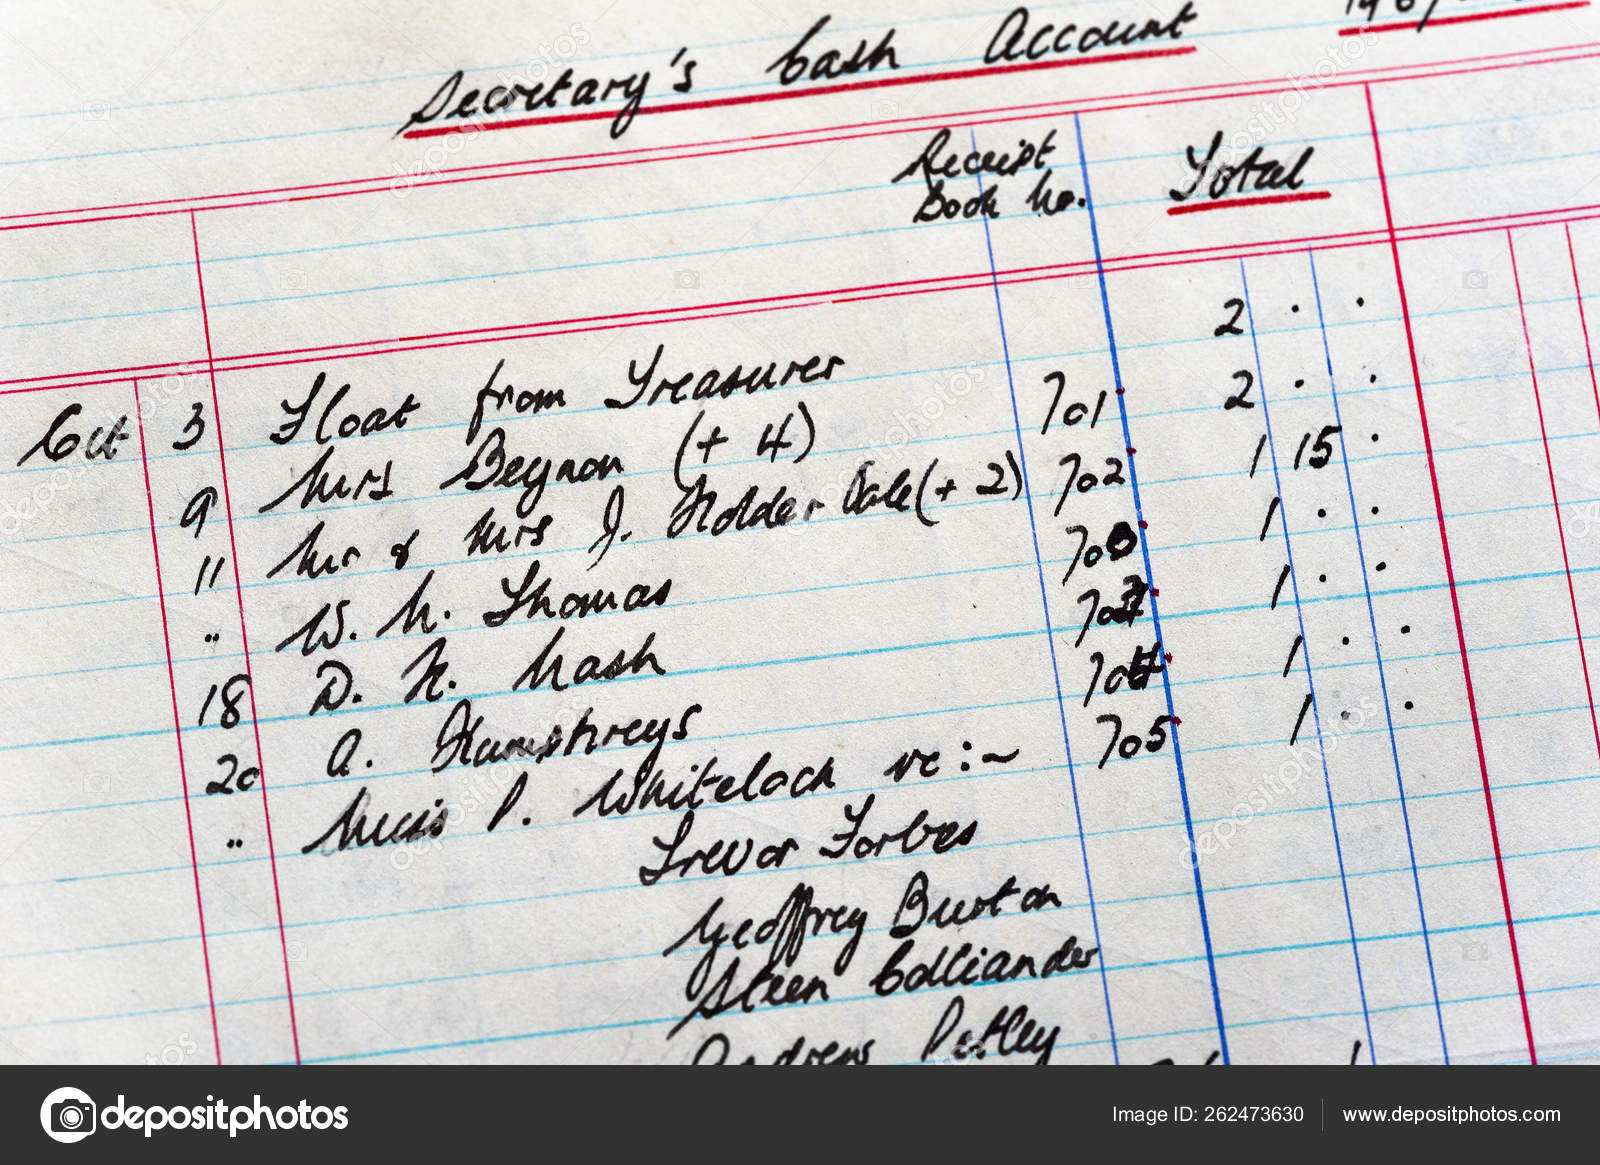 Secretary's Cash Account
Receipt Book No.
Total
Oct 3 Float from Treasurer 2 . .
9 Mrs Beynon (+ 4) 701 2 . .
11 Mr & Mrs J. Holder Cale (+ 2) 702 1 15 .
" W. M. Thomas 1 . .
18 D. H. Nash 1 . .
20 A. Humphreys 704 1 . .
" Miss P. Whitelock re:~ 705 1 . .
Trevor Forbes
Geoffrey Burton
Steen Colliander
Andrew Petley
depositphotos
Image ID: 262473630 www.depositphotos.com